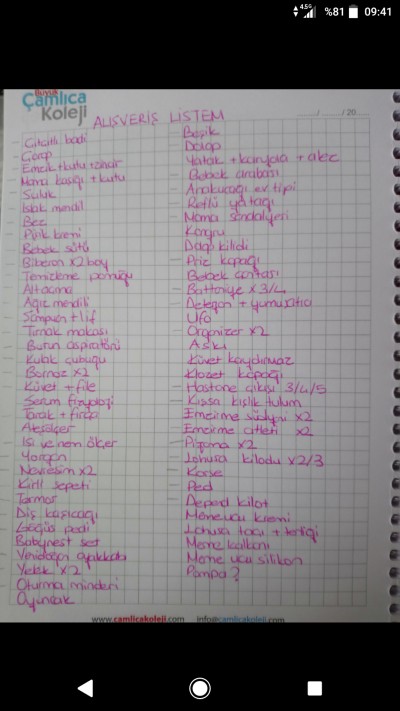 4.5G %81 09:41
Büyük
Çamlıca
Koleji
ALIŞVERİŞ LİSTEM
...../...../20.....
- Çıtçıtlı badi
- Çorap
- Emzik + kutu + zincir
- Mama kaşığı + kutu
- Suluk
- Islak mendil
- Bez
- Pişik kremi
- Bebek sütü
- Biberon x2 boy
- Temizleme pamuğu
- Alt açma
- Ağız mendili
- Şampuan + lif
- Tırnak makası
- Burun aspiratörü
- Kulak çubuğu
- Bornoz x2
- Küvet + file
- Serum fizyoloji
- Tarak + fırça
- Ateşölçer
- Isı ve nem ölçer
- Yorgan
- Nevresim x2
- Kirli sepeti
- Diş kaşıcağı
- Göğüs pedi
- Babynest set
- Yenidoğan ayakkabı
- Yelek x2
- Oturma minderi
- Oyuncak
- Beşik
- Dolap
- Yatak + karyola + alez
- Bebek arabası
- Anakucağı ev tipi
- Reflü yatağı
- Mama sandalyesi
- Kanguru
- Dolap kilidi
- Priz kapağı
- Bebek çantası
- Battaniye x3/4
- Deterjan + yumuşatıcı
- Ufo
- Organizer x2
- Askı
- Küvet kaydırmaz
- Klozet kapağı
- Hastane çıkışı 3/4/5
- Kışsa kışlık tulum
- Emzirme südyeni x2
- Emzirme atleti x2
- Pijama x2
- Lohusa kilodu x2/3
- Korse
- Ped
- Depend kilot
- Meme ucu kremi
- Lohusa tacı + terliği
- Meme kalkanı
- Meme ucu silikon
- Pompa?
www.camlicakoleji.com info@camlicakoleji.com